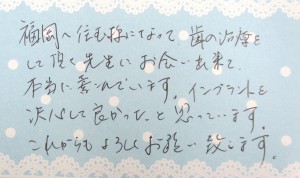 福岡へ住む様になって、歯の治療を
して頂く先生にお会い出来て、
本当に喜んでいます。インプラントを
決心して良かったと思っています。
これからもよろしくお願い致します。